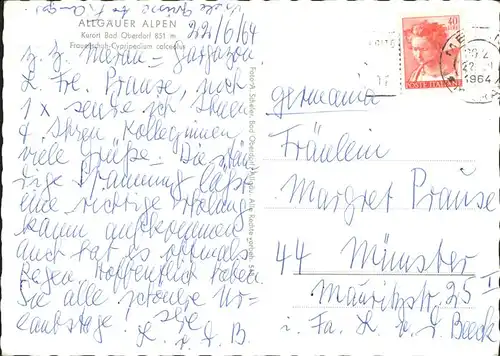 ALLGÄUER ALPEN
Kurort Bad Oberdorf 851 m
Frauenschuh-Cypripedium calceolus
22/6/64
z. Z. Meran - Gargazon
L. Frl. Prause, noch
1 x sende ich Ihnen
u. Ihren Kolleginnen
viele Grüße. Die stän-
dige Spannung läßt
eine richtige Erholung
kaum aufkommen
auch hat es oftmals
Regen. Hoffentlich haben
Sie alle schöne Ur-
laubstage! Ihr
L. v. d. B.
40
POSTE ITALIANE
1964
Germania
Fräulein
Margret Prause
44 Münster
Mauritzstr. 25 I
i. Fa. L. v. d. Beeck